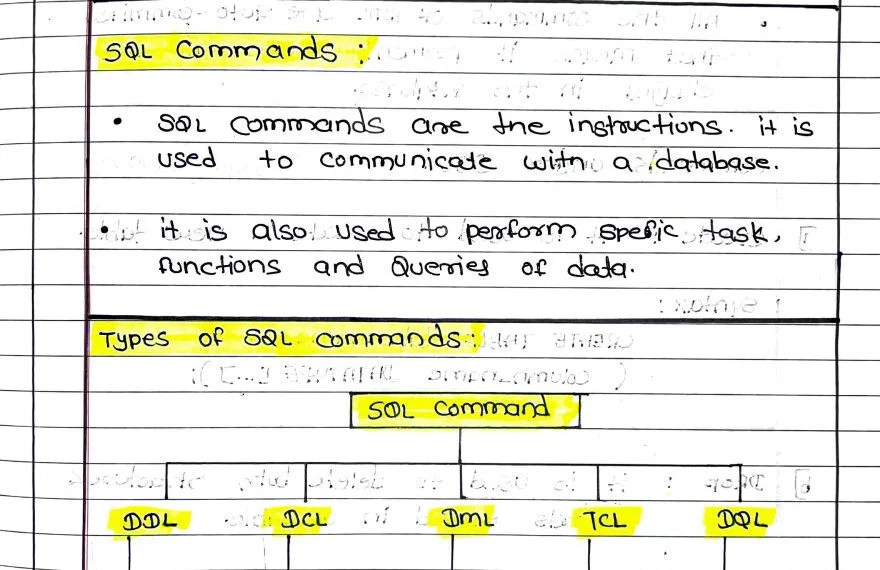 SQL Commands :
• SQL commands are the instructions. it is
used to communicate with a database.
• it is also used to perform spefic task,
functions and Queries of data.
Types of SQL commands :
SQL Command
DDL DCL DML TCL DQL